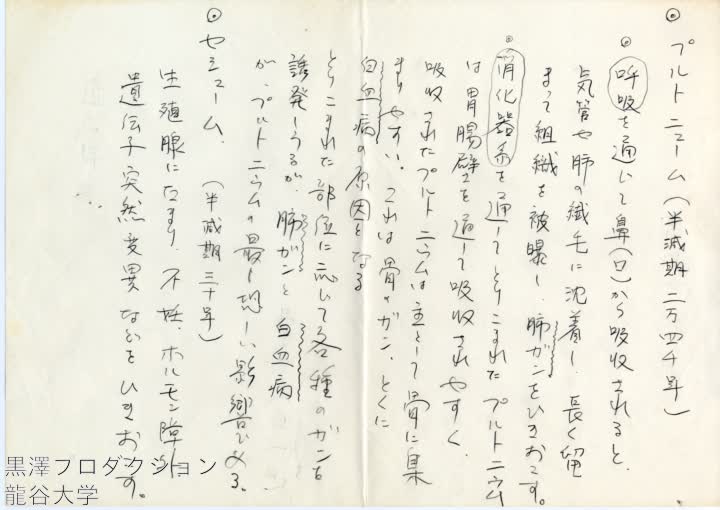 ◎ プルトニューム(半減期 二万四千年)
◎ 呼吸を通して鼻(口)から吸収されると、
気管や肺の繊毛に沈着し、長く留
まって組織を被曝し、肺ガンをひきおこす。
◎ 消化器系を通してとりこまれたプルトニウム
は胃腸壁を通して吸収されやすく、
吸収されたプルトニウムは主として骨に集
まりやすい。これは骨のガン、とくに
白血病の原因となる
とりこまれた部位に応じて各種のガンを
誘発しうるが、肺ガンと白血病
が、プルトニウムの最も恐しい影響である。
◎ セシューム、(半減期三十年)
生殖腺にたまり、不妊、ホルモン障外
遺伝子突然変異などをひきおこす。
...
黒澤プロダクション
龍谷大学